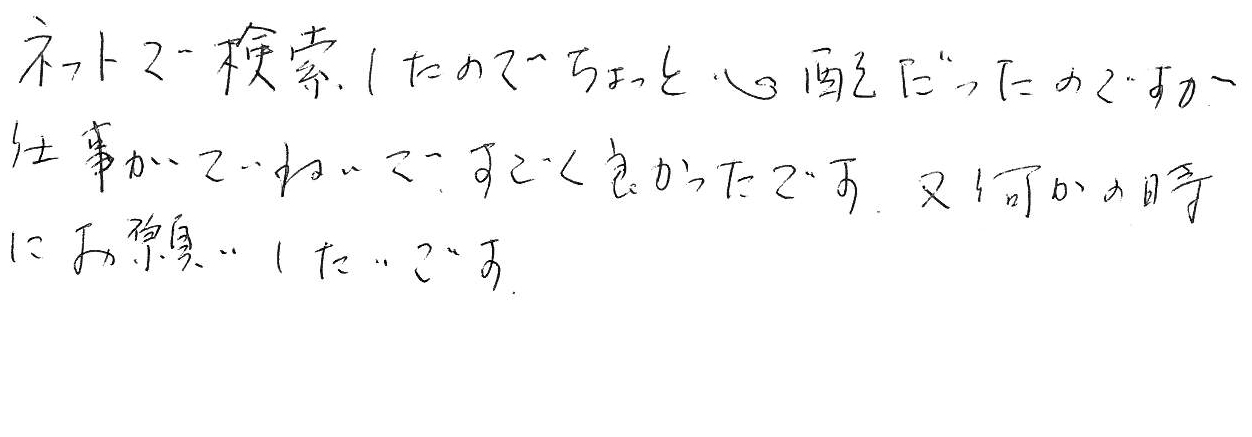 ネットで検索したのでちょっと心配だったのですが
仕事がていねいで、すごく良かったです。又何かの時
にお願いしたいです。